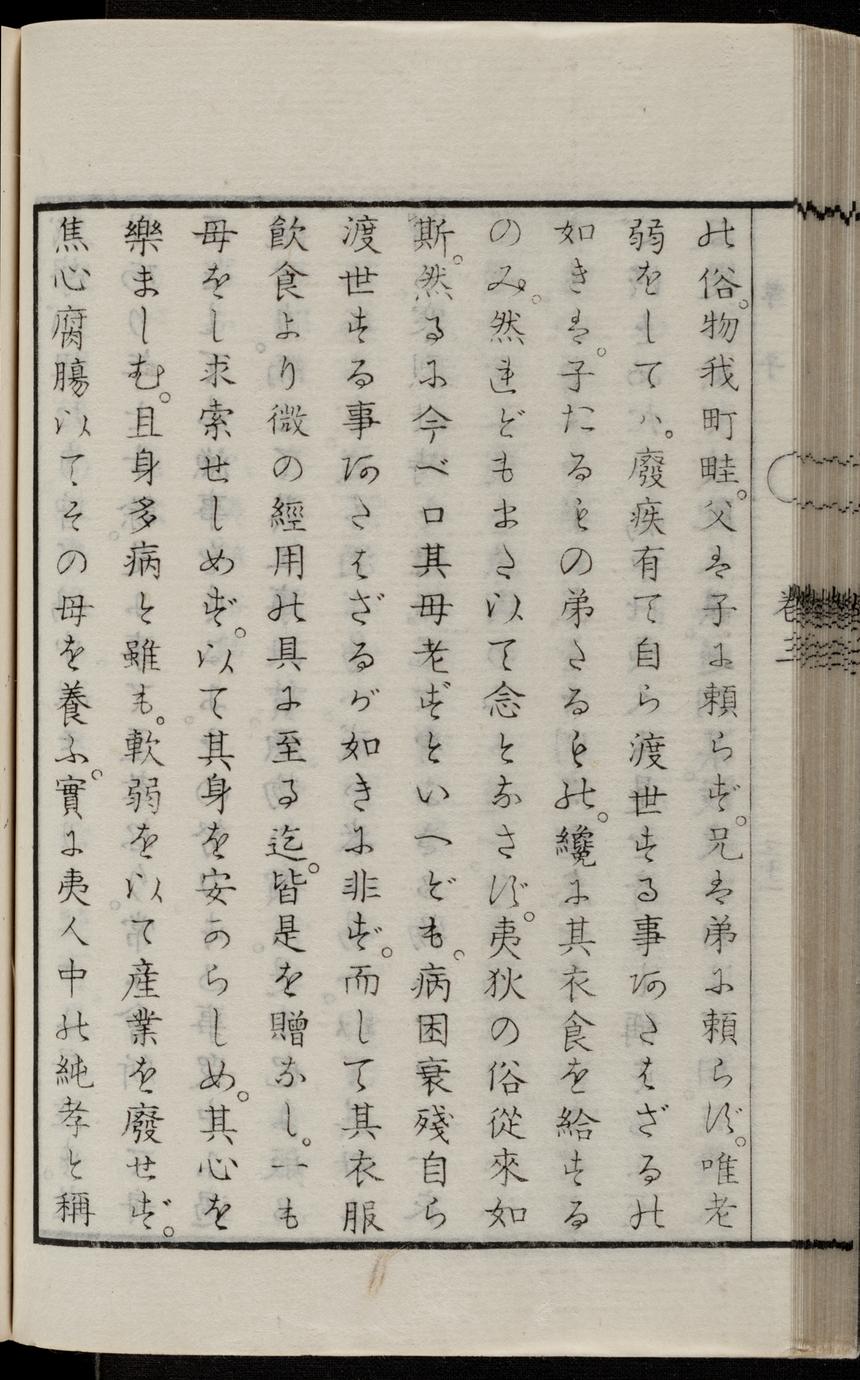 の俗。物我町畦。父は子に頼らず。兄は弟に頼らず。唯老
弱をしてハ。廢疾有て自ら渡世する事あたはざるの
如きは。子たるもの弟たるもの。纔に其衣食を給する
のみ。然れどもまた以て念となさず。夷狄の俗從來如
斯。然るに今ベロ其母老ずといへども。病困衰殘自ら
渡世する事あたはざるが如きに非ず。而して其衣服
飲食より微の經用の具に至る迄。皆是を贈なし。一も
母をし求索せしめず。以て其身を安からしめ。其心を
樂ましむ。且身多病と雖も。軟弱を以て産業を廢せず。
焦心腐膓以てその母を養ふ。實に夷人中の純孝と稱
卷三